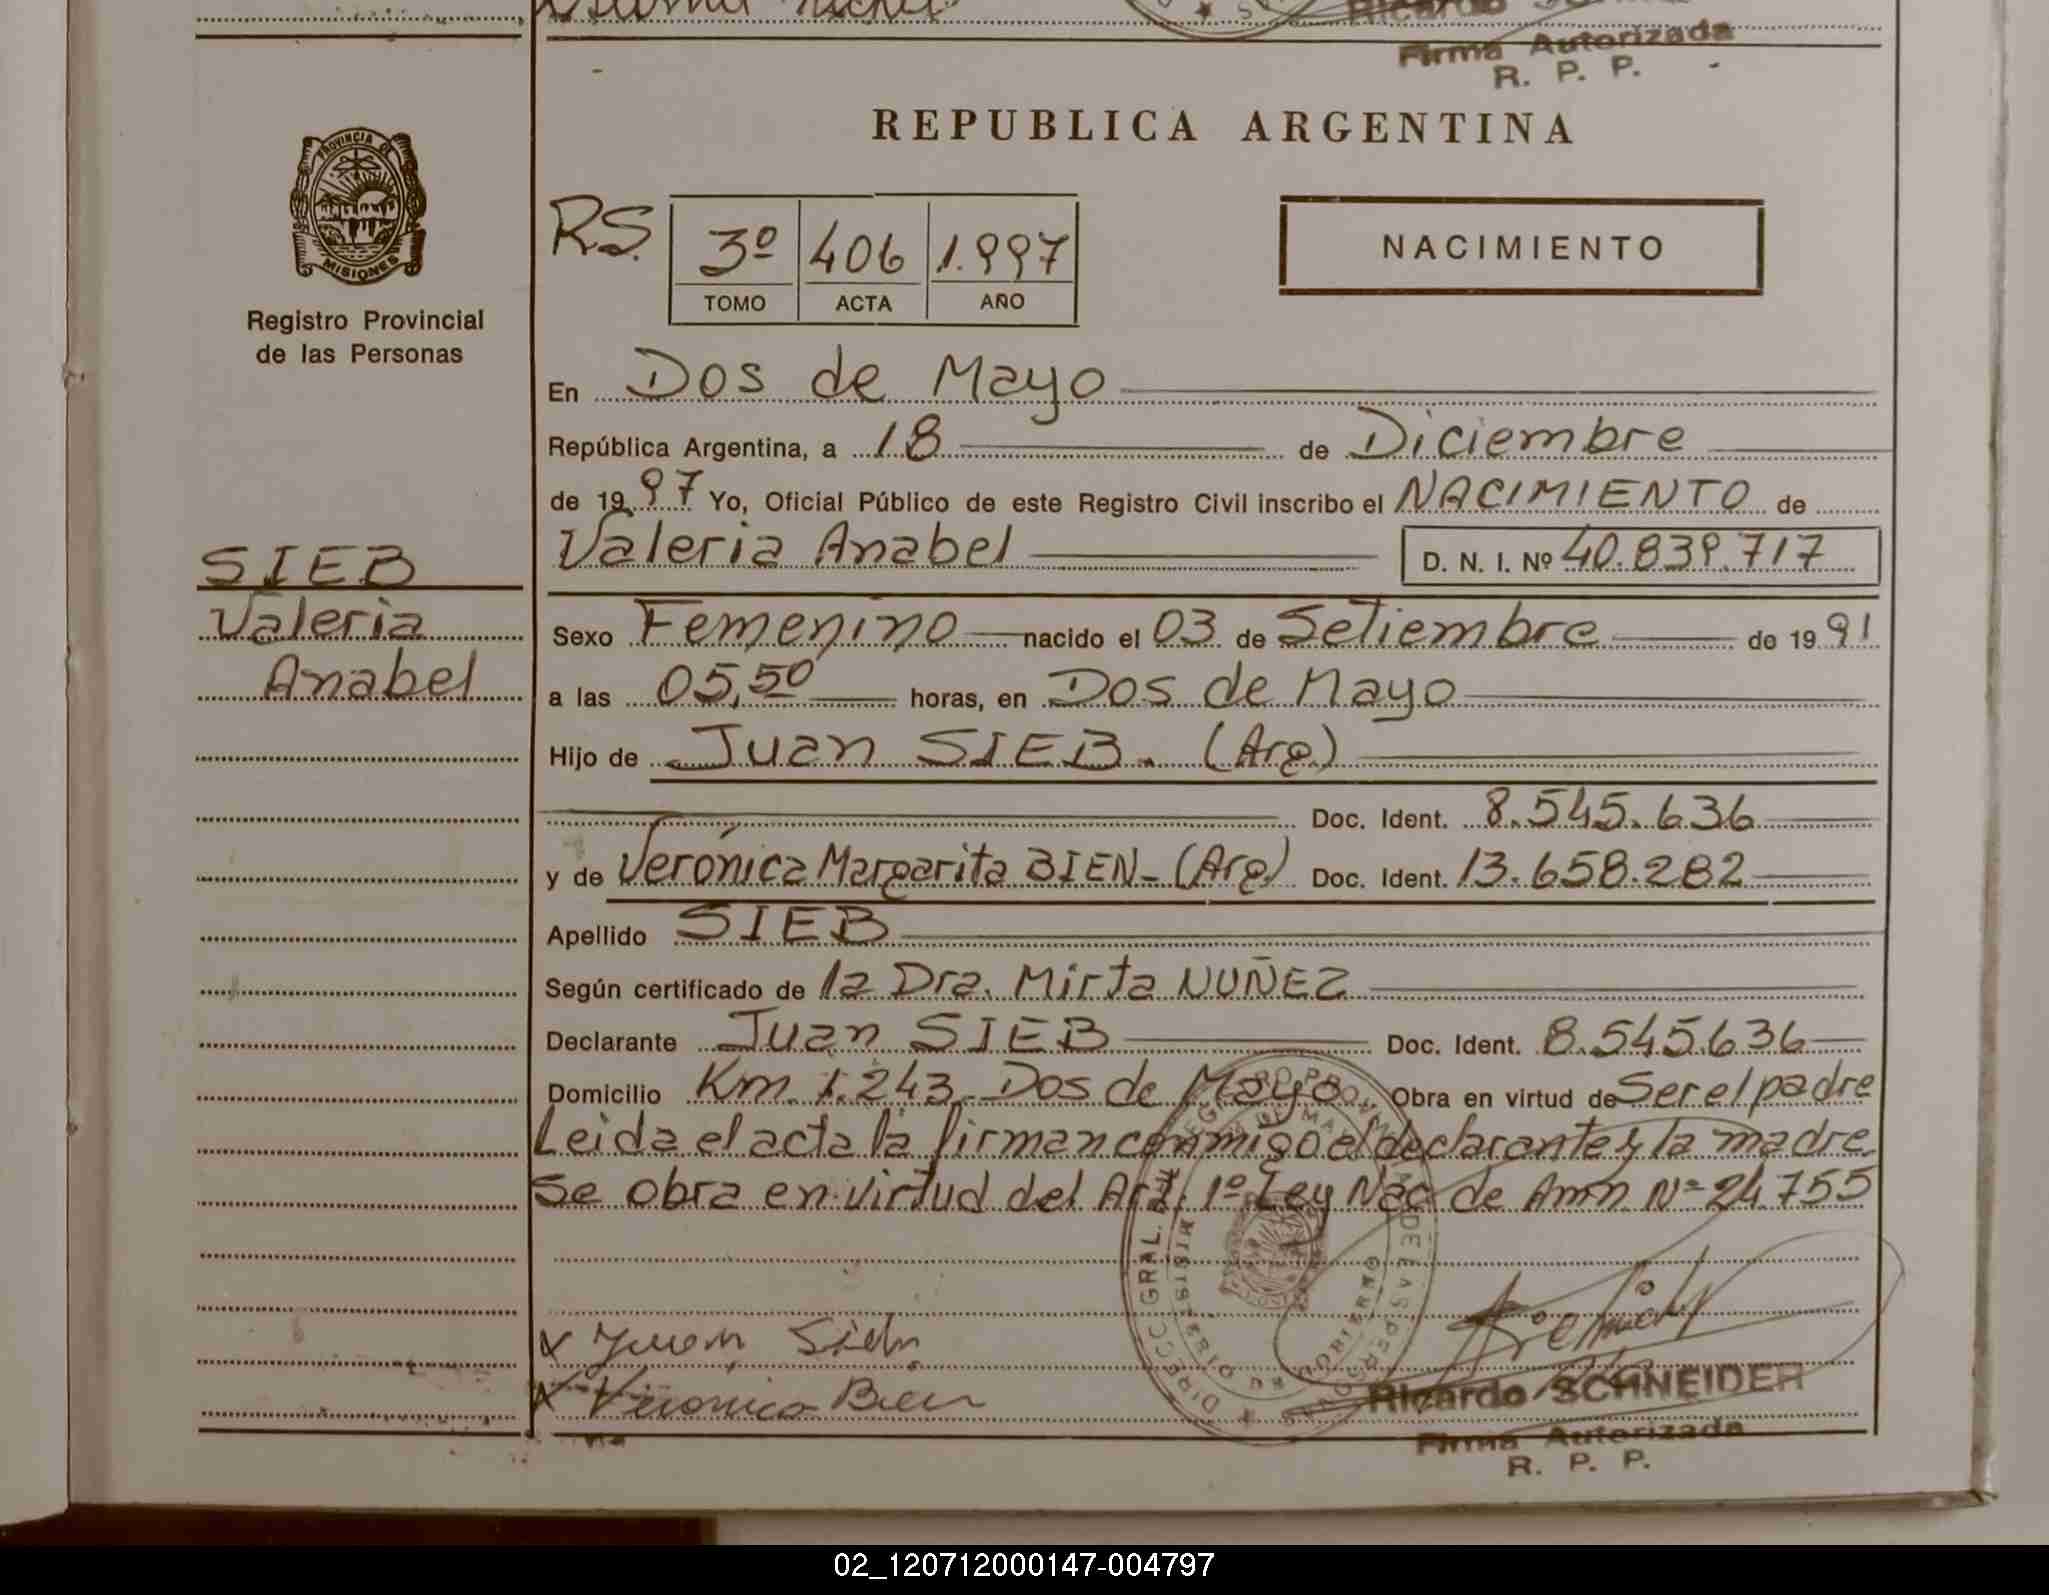 Firma Autorizada
R. P. P.
PROVINCIA DE
MISIONES
Registro Provincial
de las Personas
SIEB
Valeria
Anabel
REPUBLICA ARGENTINA
RS. 3º 406 1.997
TOMO ACTA AÑO
NACIMIENTO
En Dos de Mayo
República Argentina, a 18 de Diciembre
de 1997 Yo, Oficial Público de este Registro Civil inscribo el NACIMIENTO de
Valeria Anabel D. N. I. Nº 40.839.717
Sexo Femenino nacido el 03 de Setiembre de 1991
a las 05,50 horas, en Dos de Mayo
Hijo de Juan SIEB. (Arg)
Doc. Ident. 8.545.636
y de Verónica Margarita BIEN- (Arg) Doc. Ident. 13.658.282
Apellido SIEB
Según certificado de la Dra. Mirta NUÑEZ
Declarante Juan SIEB Doc. Ident. 8.545.636
Domicilio Km. 1.243 Dos de Mayo Obra en virtud de Ser el padre
Leida el acta la firman conmigo el declarante y la madre.
Se obra en virtud del Art. 1º Ley Nac de Amn Nº 24.755
x Juan Sieb
x Veronica Bien
Ricardo SCHNEIDER
Firma Autorizada
R. P. P.
02_120712000147-004797